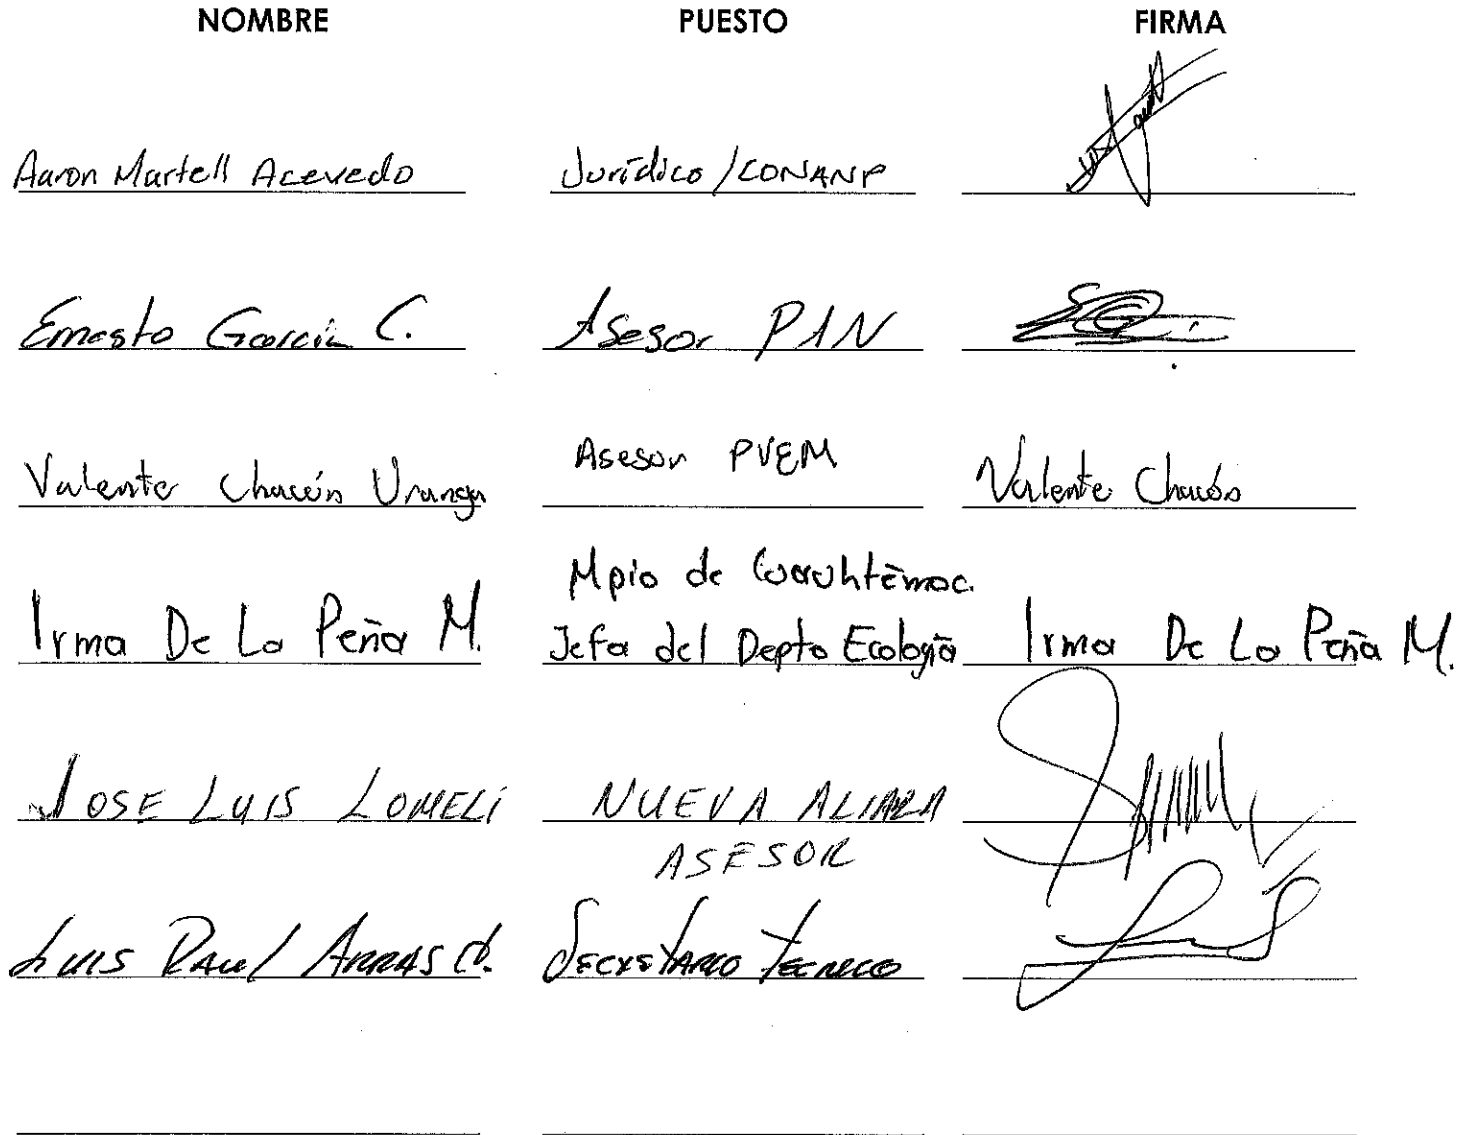 NOMBRE PUESTO FIRMA
Aaron Martell Acevedo Jurídico/CONANP
Ernesto García C. Asesor PAN
Valente Chacón Uranga Asesor PVEM Valente Chacón
Mpio de Cuauhtémoc.
Irma De La Peña M. Jefa del Depto Ecología Irma De La Peña M.
JOSE LUIS LOMELÍ NUEVA ALIANZA
ASESOR
LUIS RAUL ARRAS SECRETARIO TECNICO